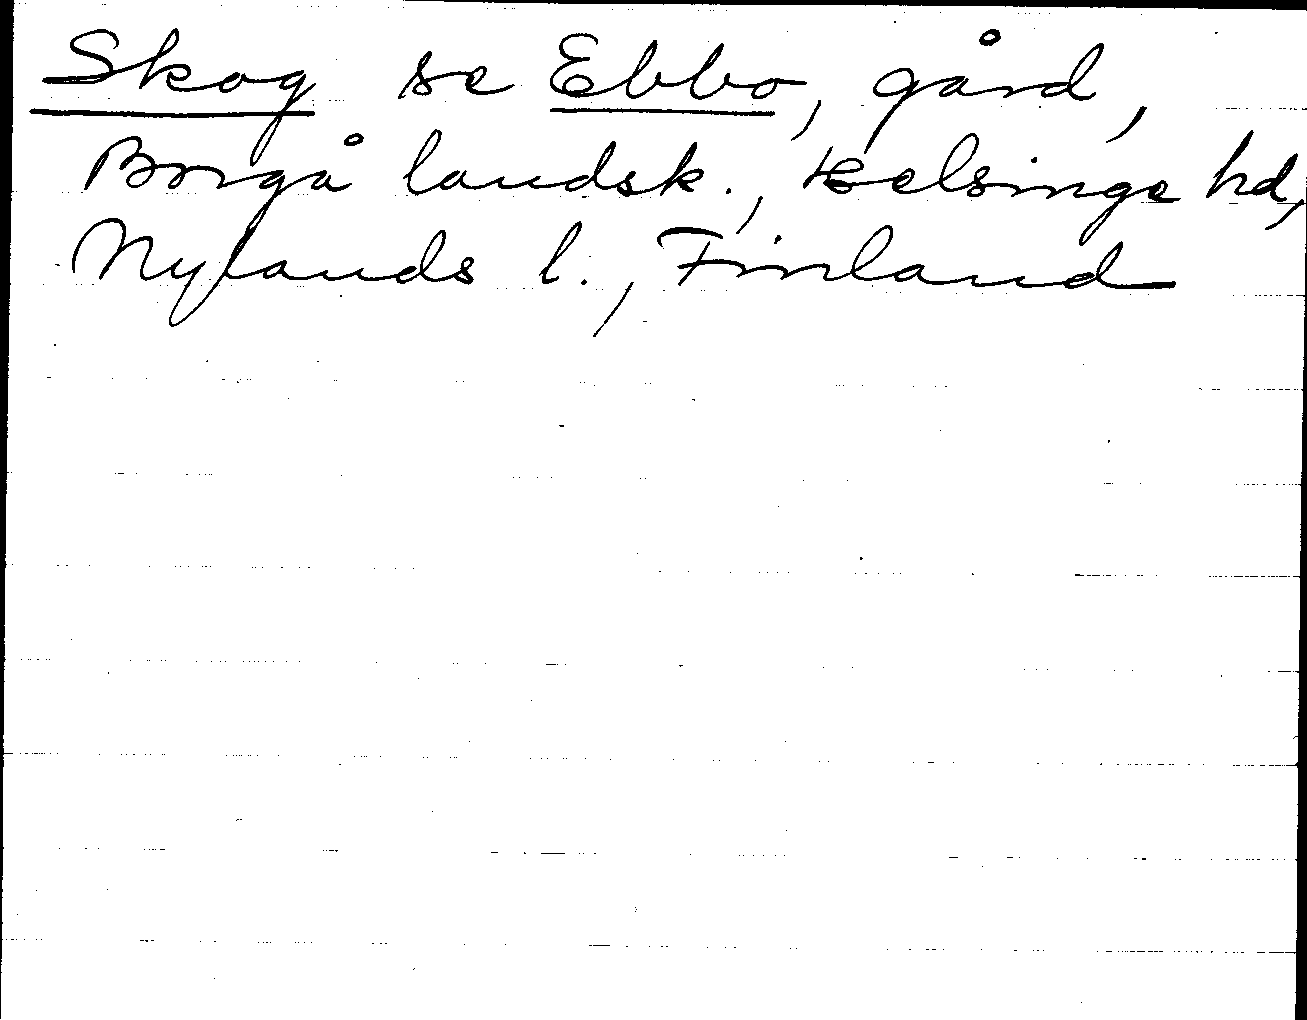 Skog se Ebbo, gård,
Borgå landsk., Helsinge hd,
Nylands l., Finland